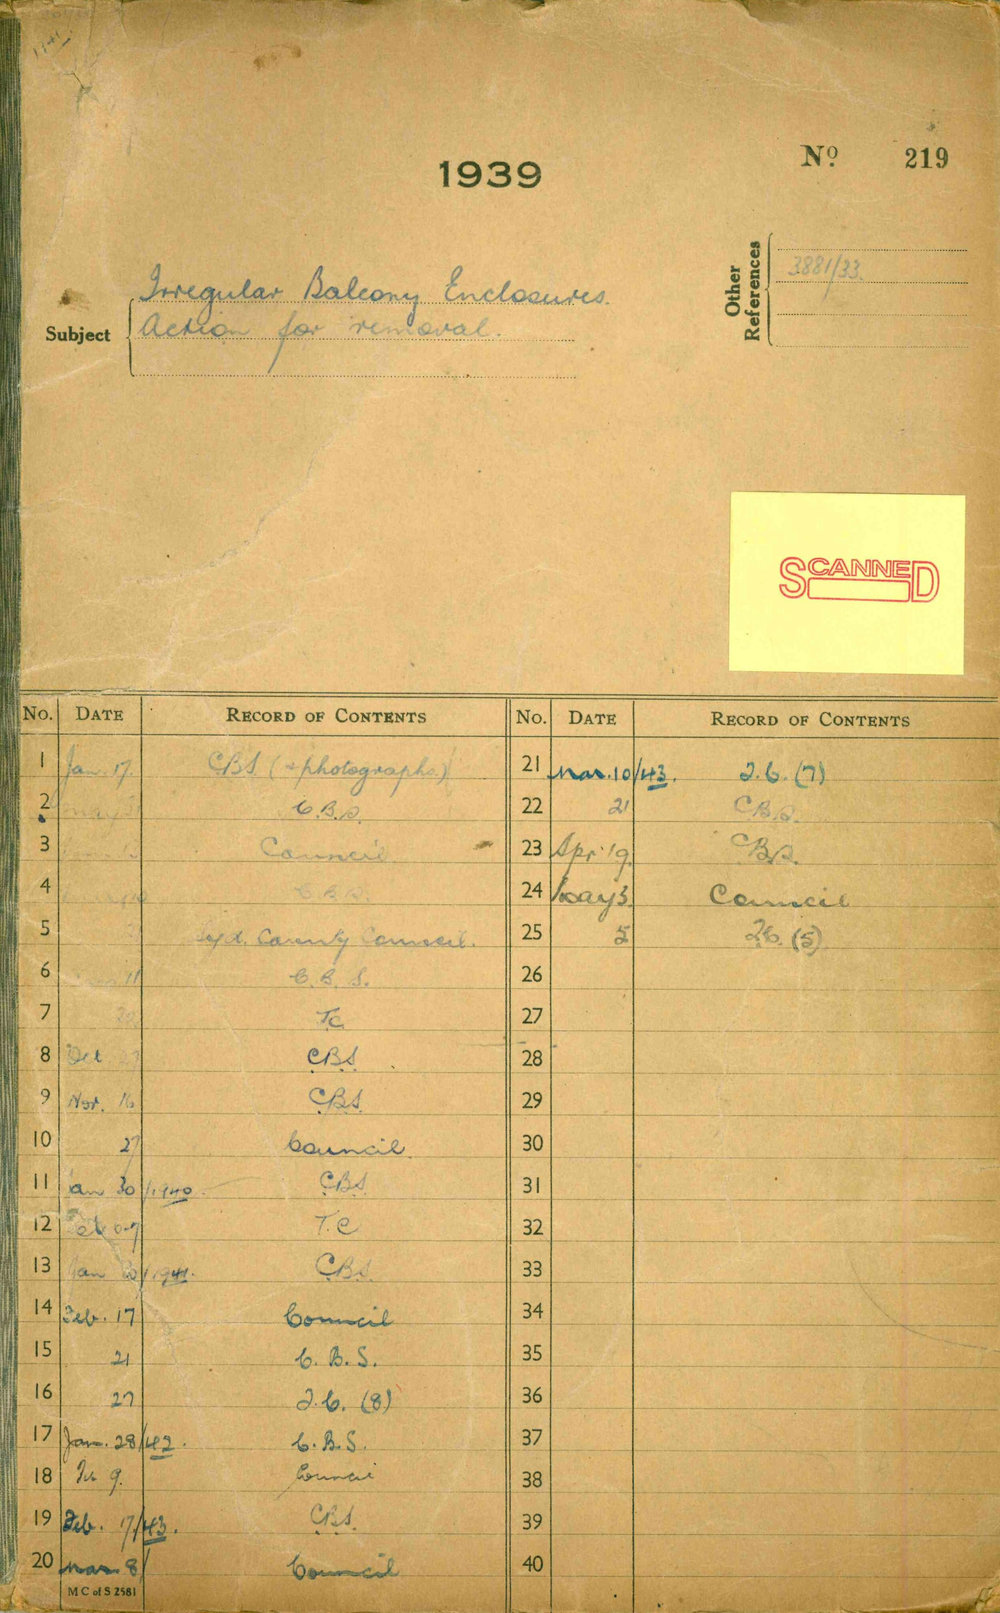 1941
1939
Nº 219
Other References
3881/33.
Subject
Irregular Balcony Enclosures.
Action for removal.
SCANNED
No. DATE RECORD OF CONTENTS
1 Jan. 17. CBS (+ photographs)
2 C.B.S.
3 Council
4 C.B.S.
5 Syd. County Council.
6 11 C.B.S.
7 20 TC
8 Oct 23 CBS
9 Nov. 16 CBS
10 27 Council.
11 Jan 30/1940 CBS
12 Feb T.C
13 Jan 20/1941. CBS
14 Feb. 17 Council
15 21 C.B.S.
16 27 T.C. (8)
17 Jan. 28/42. C.B.S.
18 Feb 9. Council
19 Feb. 17/43. CBS
20 Mar. 8/ Council
M C of S 2581
No. DATE RECORD OF CONTENTS
21 Mar. 10/43. T.C. (7)
22 21 CBS.
23 Apr 19. CBS.
24 May 3. Council
25 5 T.C. (5)
26
27
28
29
30
31
32
33
34
35
36
37
38
39
40